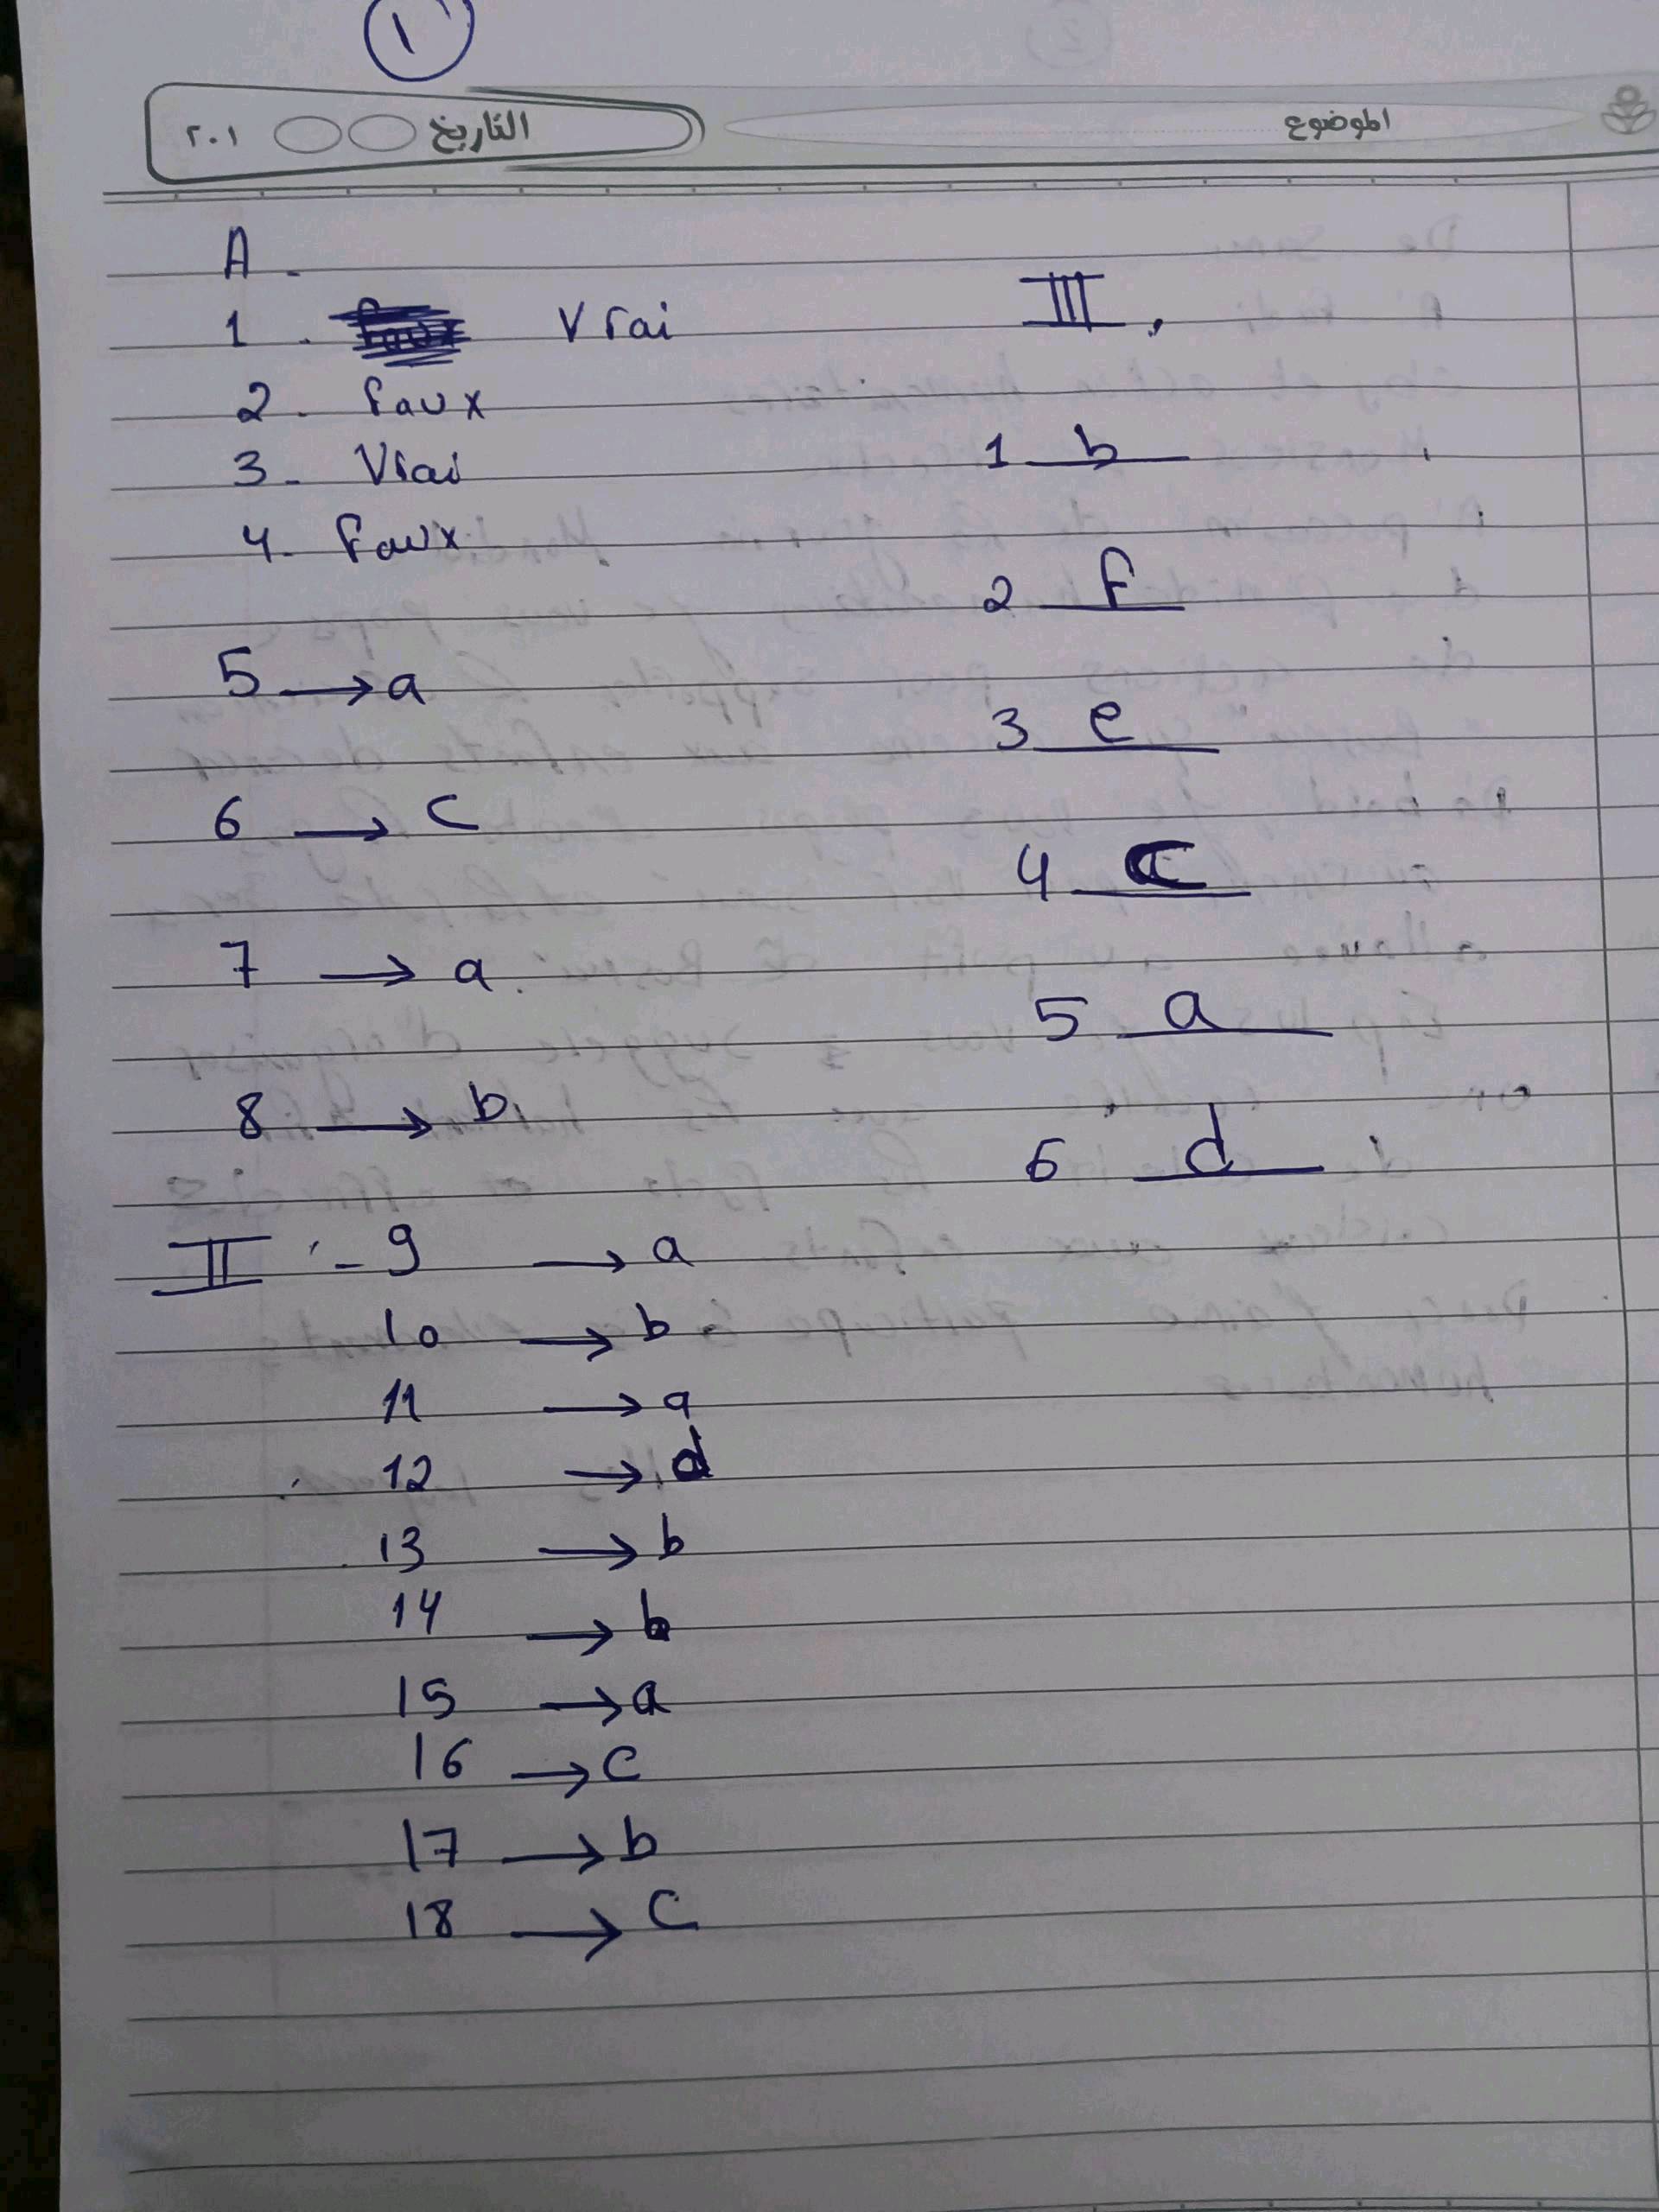 1
الموضوع
التاريخ ٢٠١
A -
1 . Vrai
2 . Faux
3 - Vrai
4 - Faux
5 → a
6 → c
7 → a.
8 → b
II - 9 → a
10 → b
11 → a
12 → d
13 → b
14 → b
15 → a
16 → c
17 → b
18 → c
III .
1 b
2 F
3 e
4 c
5 a
6 d